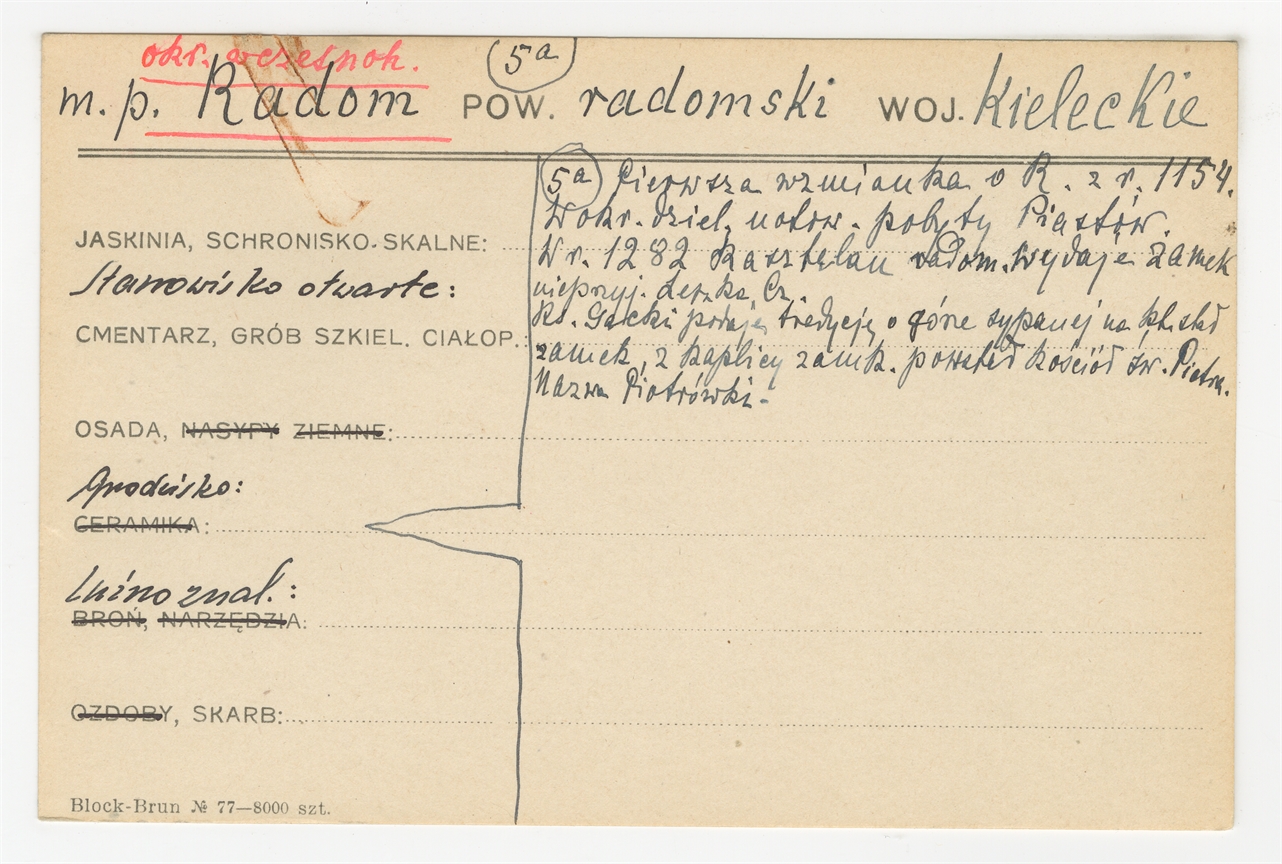 okr. wczesnoh.
5a
m. p. Radom POW. radomski WOJ. Kieleckie
5a Pierwsza wzmianka o R. z r. 1154.
W okr. dziel. notow. pobyty Piastów.
W r. 1282 Kasztelan radom. wydaje zamek
nieprzyj. Leszka Cz.
Ks. Gacki podaje tradycję o górze sypanej na pł. skł
zamek, z kaplicy zamk. powstał kościół św. Piotra.
Nazwa Piotrówki.
JASKINIA, SCHRONISKO-SKALNE:
Stanowisko otwarte:
CMENTARZ, GRÓB SZKIEL. CIAŁOP.:
OSADA, NASYPY ZIEMNE:
Grodzisko:
CERAMIKA:
Luźno znal.:
BROŃ, NARZĘDZIA:
OZDOBY, SKARB:
Block-Brun № 77—8000 szt.